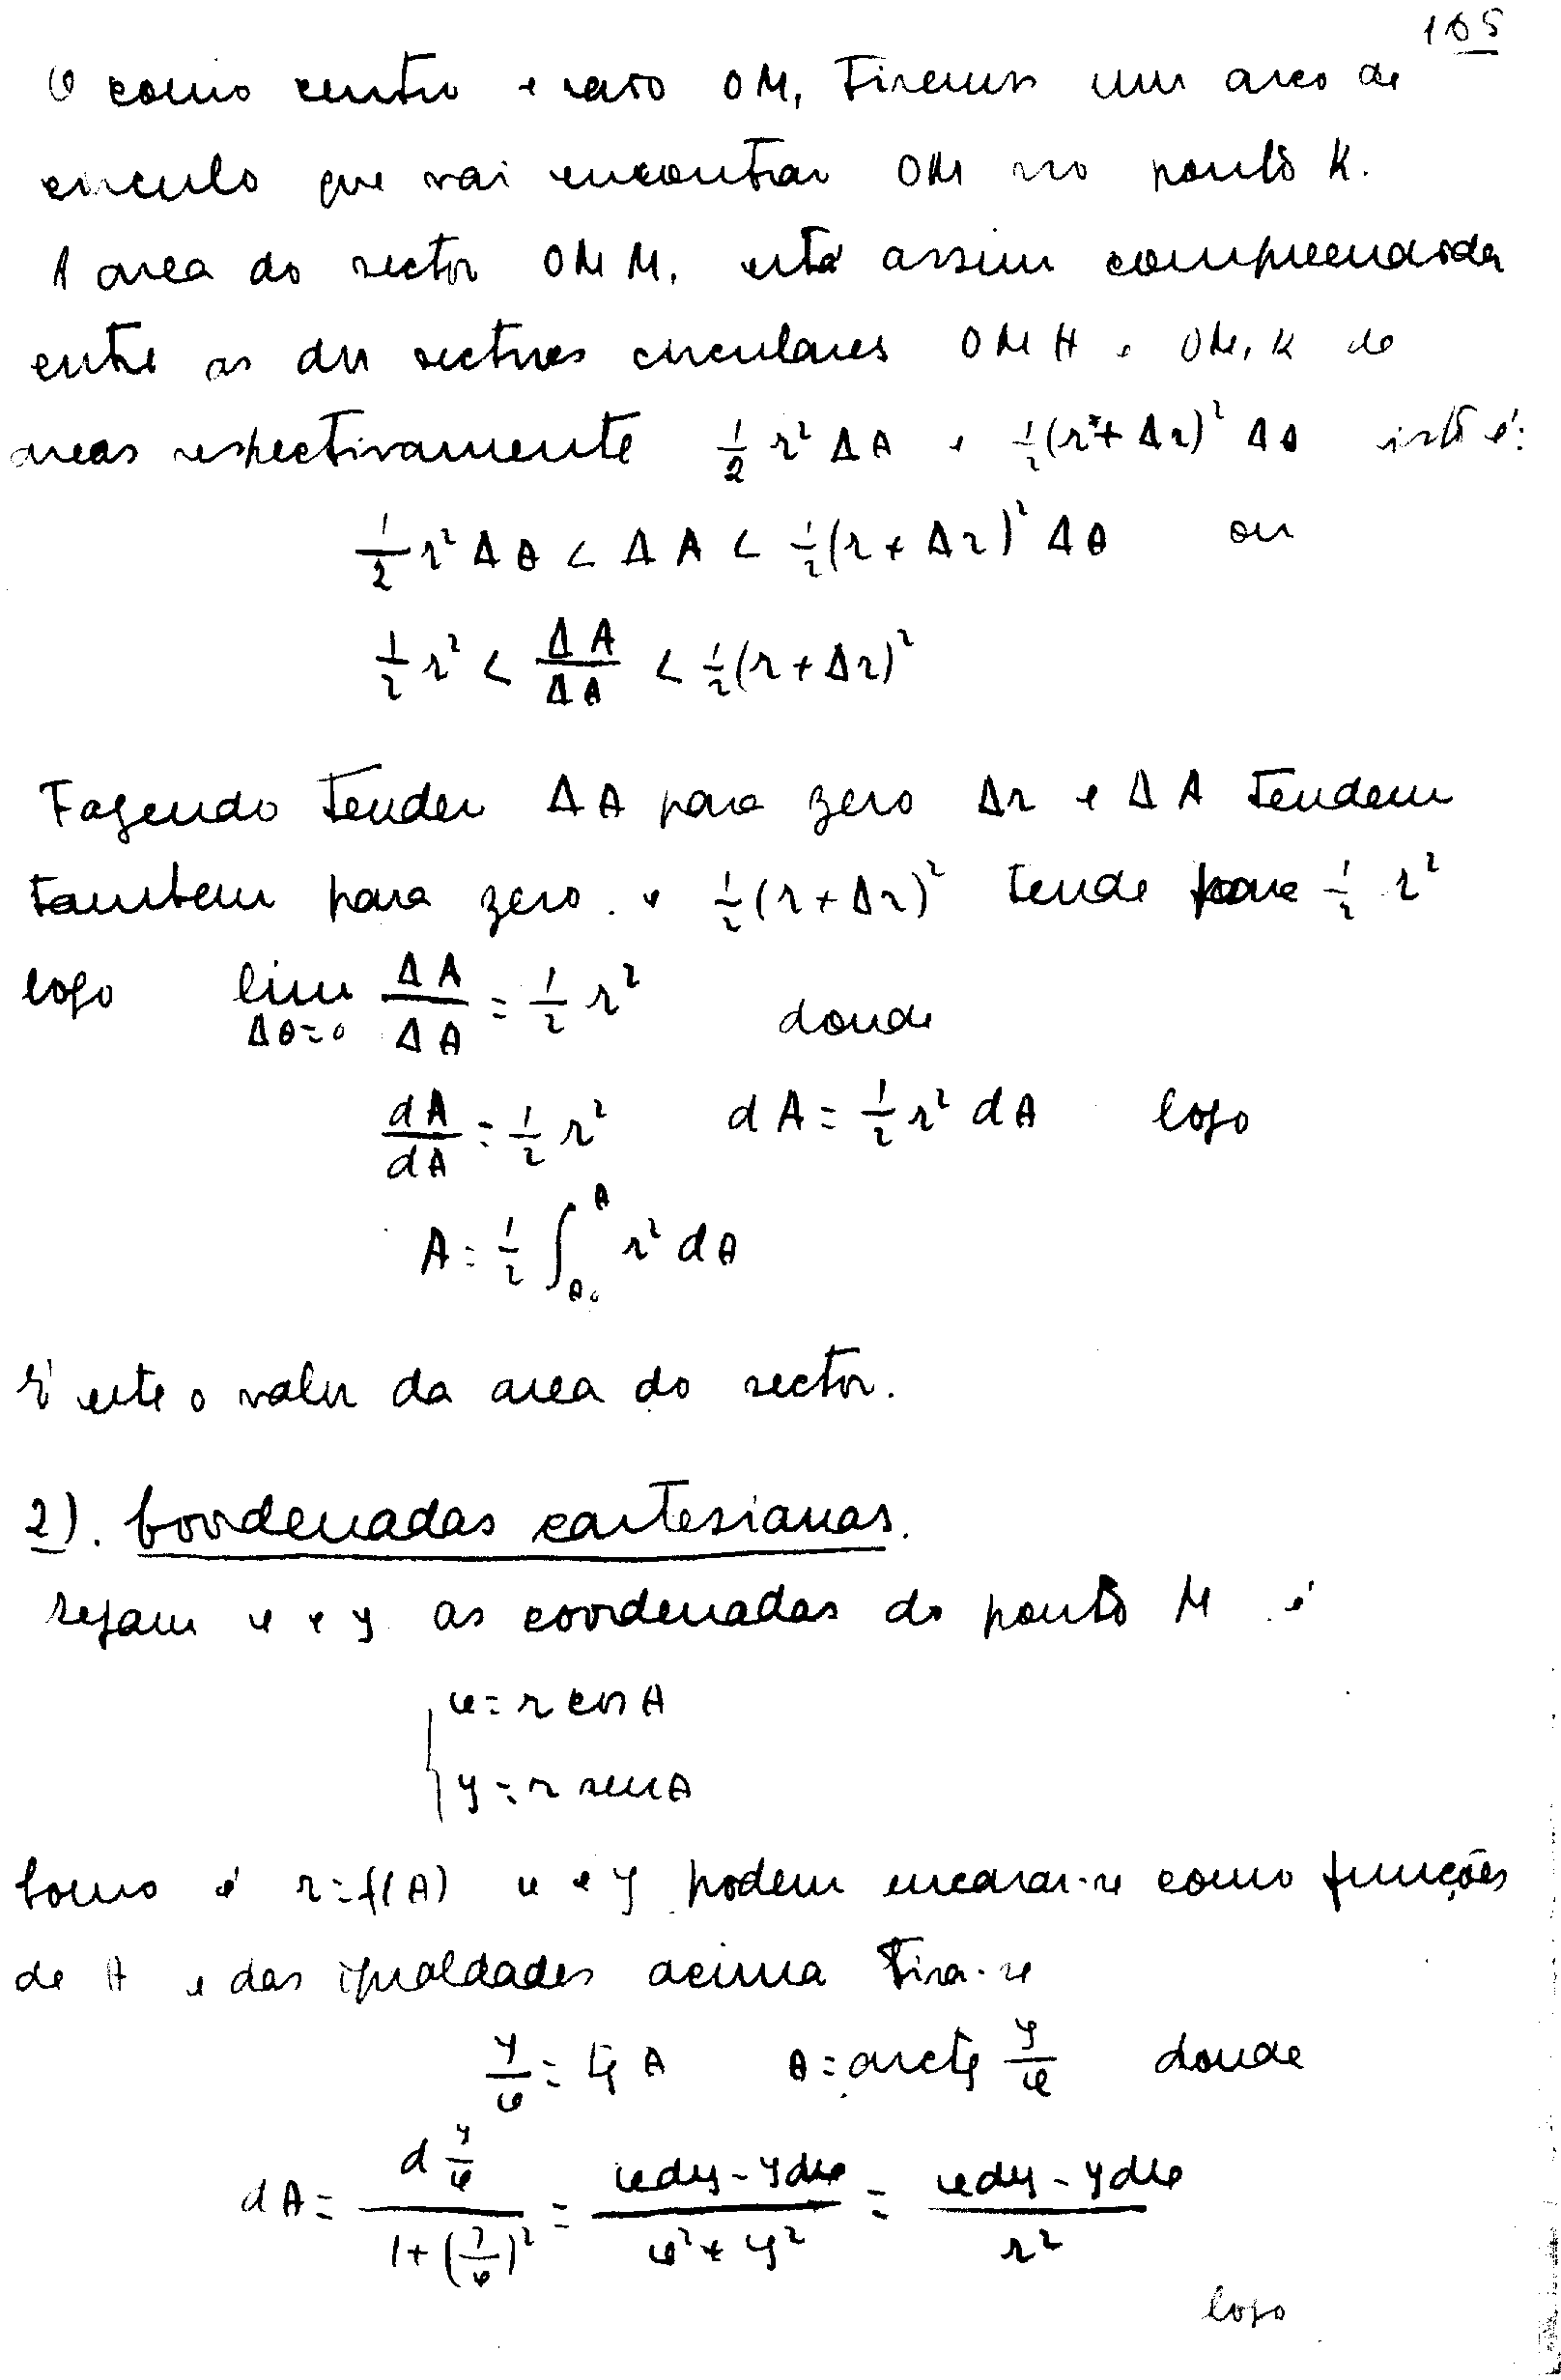 105
O como centro e raio OM₁ tiremos um arco de
circulo que vai encontrar OM no ponto K.
A area do sector OMM₁ está assim compreendida
entre as dos sectores circulares OMH e OM₁K de
areas respectivamente 1/2 r² Δθ e 1/2 (r + Δr)² Δθ isto é:
1/2 r² Δθ < ΔA < 1/2 (r + Δr)² Δθ ou
1/2 r² < ΔA/Δθ < 1/2 (r + Δr)²
Fazendo tender Δθ para zero Δr e ΔA tendem
tambem para zero. e 1/2 (r + Δr)² tende para 1/2 r²
logo lim Δθ=0 ΔA/Δθ = 1/2 r² donde
dA/dθ = 1/2 r² dA = 1/2 r² dθ logo
A = 1/2 ∫θ₀^θ r² dθ
É este o valor da area do sector.
2). Coordenadas cartesianas.
Sejam x e y as coordenadas do ponto M é
{ x = r cos θ
y = r sen θ
Como é r = f(θ) x e y podem encarar-se como funções
de θ e das igualdades acima tira-se
y/x = tg θ θ = arctg y/x donde
dθ = d y/x / 1 + (y/x)² = xdy - ydx / x² + y² = xdy - ydx / r²
logo